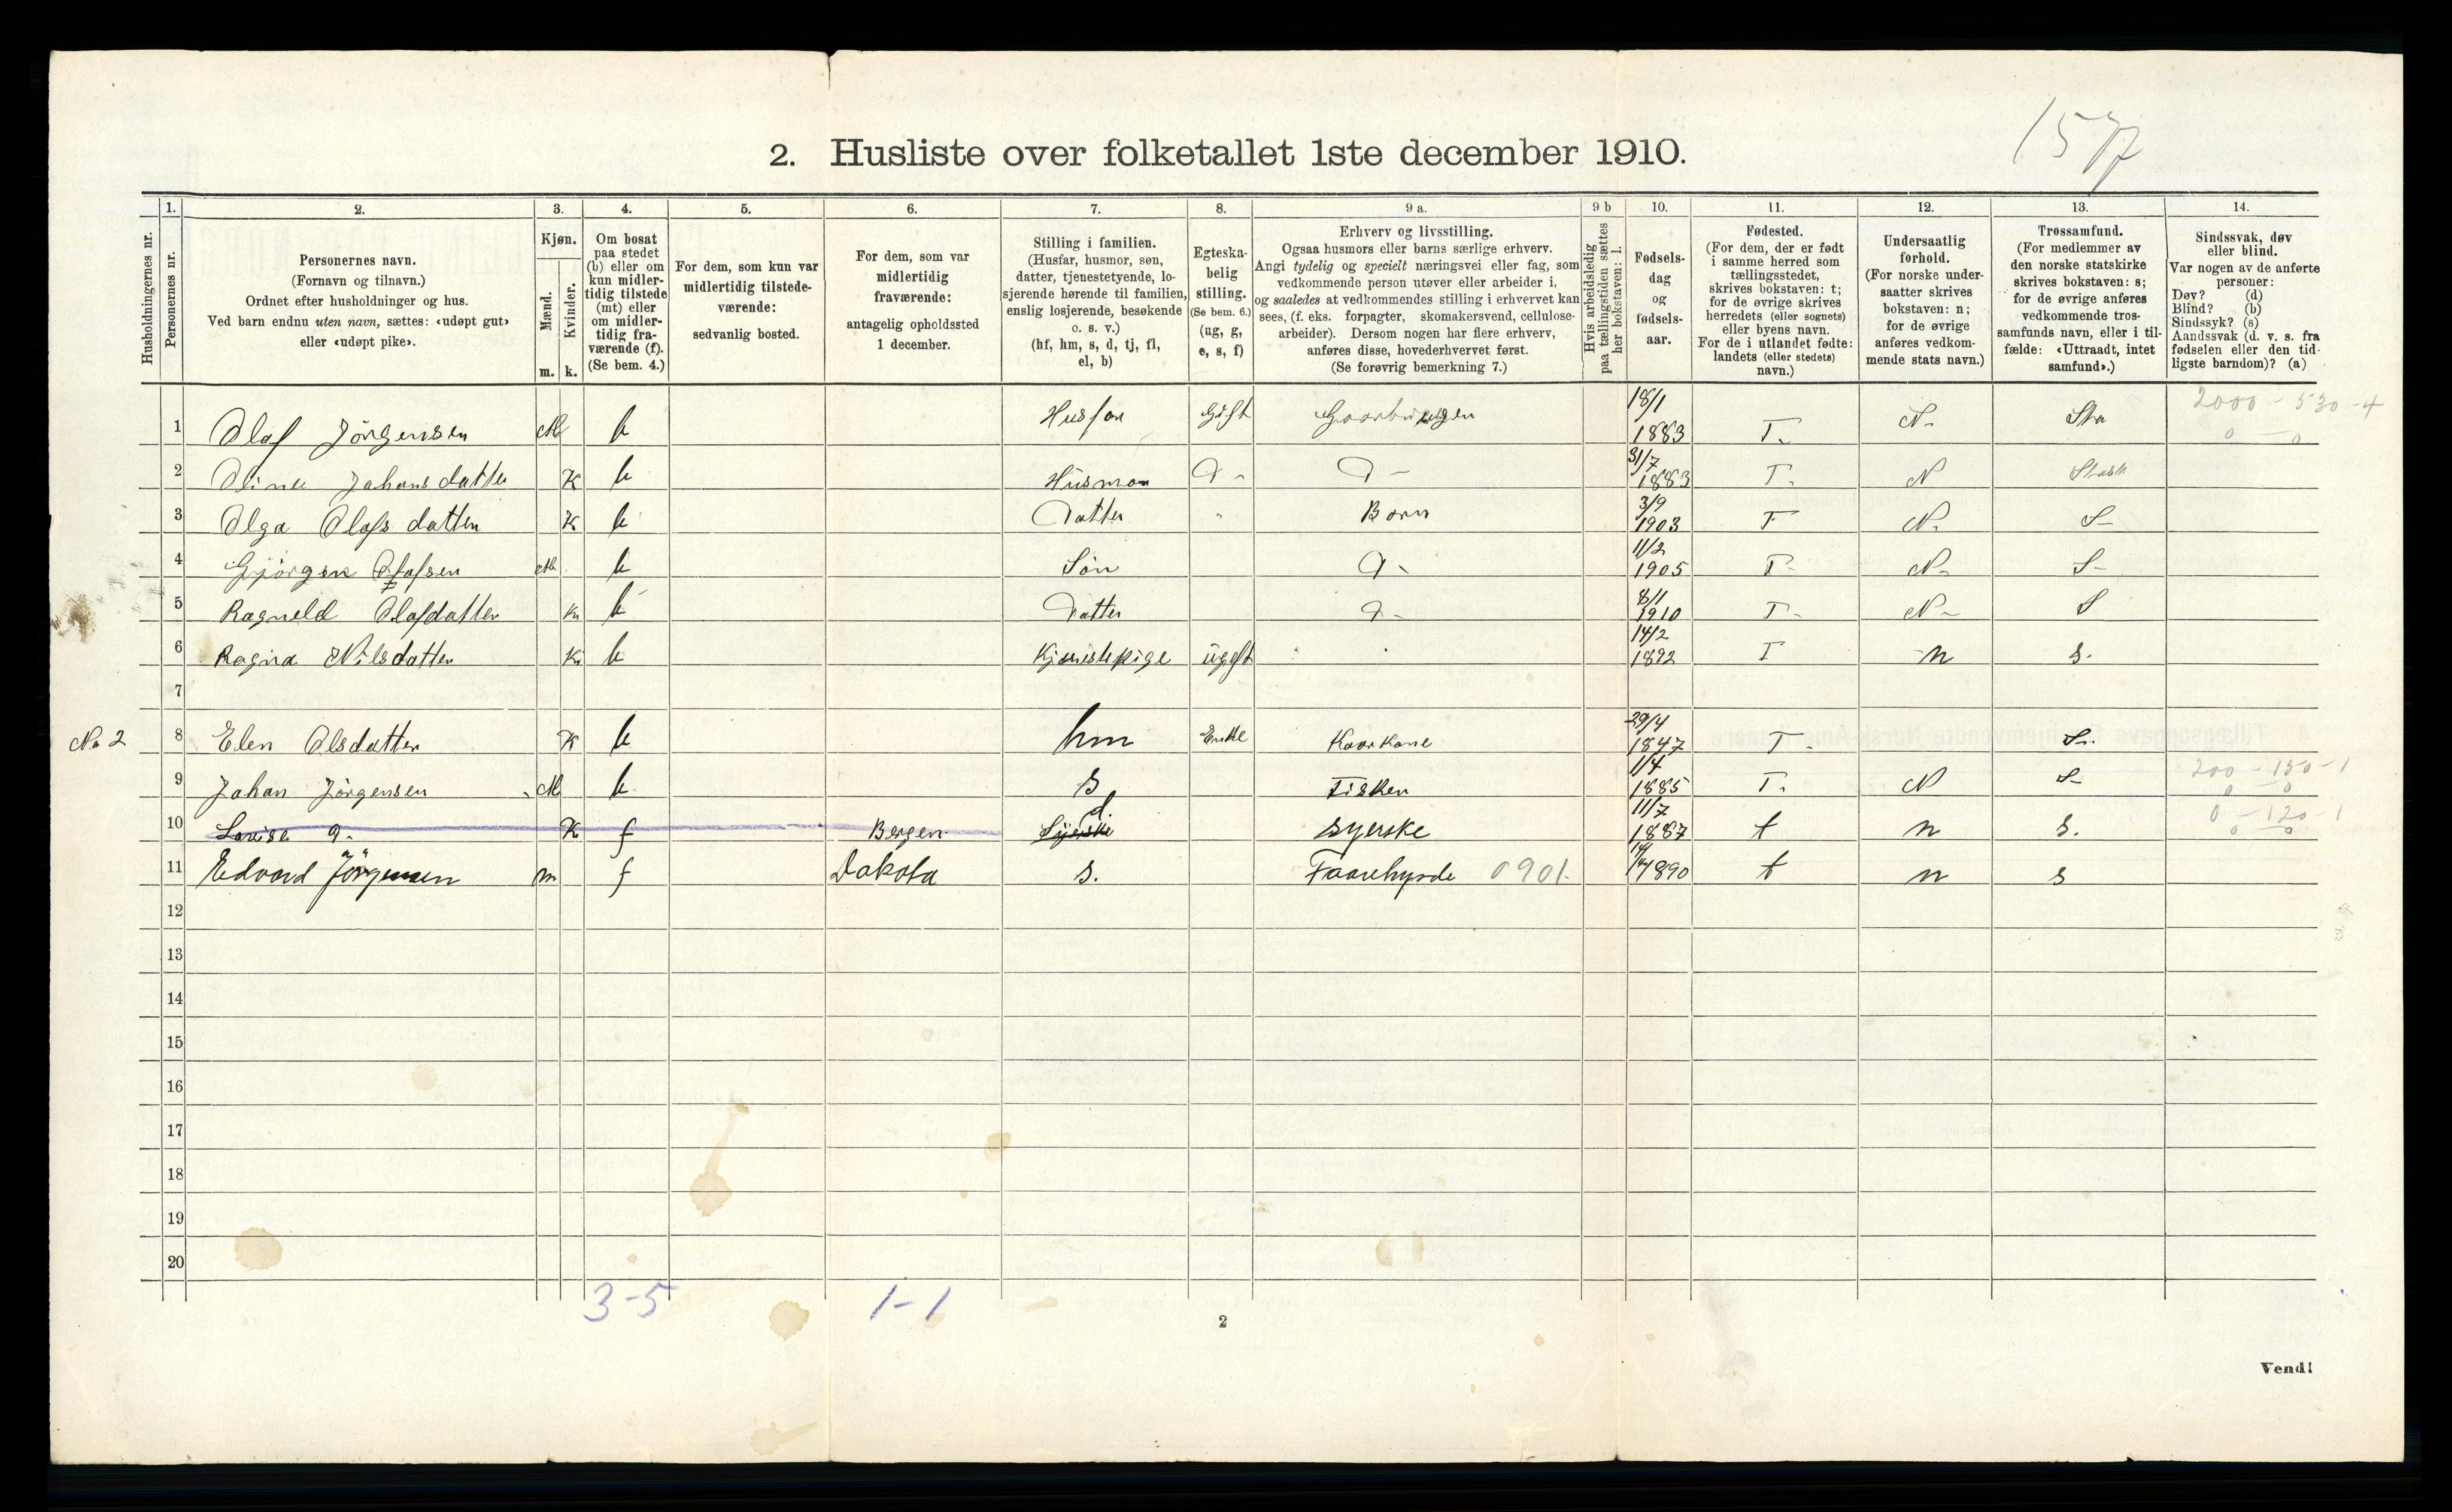 157
2. Husliste over folketallet 1ste december 1910.
Husholdningernes nr.
1. Personernes nr.
2. Personernes navn. (Fornavn og tilnavn.) Ordnet efter husholdninger og hus. Ved barn endnu uten navn, sættes: «udøpt gut» eller «udøpt pike».
3. Kjøn. Mænd. m. Kvinder. k.
4. Om bosat paa stedet (b) eller om kun midlertidig tilstede (mt) eller om midlertidig fraværende (f). (Se bem. 4.)
5. For dem, som kun var midlertidig tilstedeværende: sedvanlig bosted.
6. For dem, som var midlertidig fraværende: antagelig opholdssted 1 december.
7. Stilling i familien. (Husfar, husmor, søn, datter, tjenestetyende, losjerende hørende til familien, enslig losjerende, besøkende o. s. v.) (hf, hm, s, d, tj, fl, el, b)
8. Egteskabelig stilling. (Se bem. 6.) (ug, g, e, s, f)
9 a. Erhverv og livsstilling. Ogsaa husmors eller barns særlige erhverv. Angi tydelig og specielt næringsvei eller fag, som vedkommende person utøver eller arbeider i, og saaledes at vedkommendes stilling i erhvervet kan sees, (f. eks. forpagter, skomakersvend, cellulosearbeider). Dersom nogen har flere erhverv, anføres disse, hovederhvervet først. (Se forøvrig bemerkning 7.)
9 b Hvis arbeidsledig paa tællingstiden sættes her bokstaven: l.
10. Fødselsdag og fødselsaar.
11. Fødested. (For dem, der er født i samme herred som tællingsstedet, skrives bokstaven: t; for de øvrige skrives herredets (eller sognets) eller byens navn. For de i utlandet fødte: landets (eller stedets) navn.)
12. Undersaatlig forhold. (For norske undersaatter skrives bokstaven: n; for de øvrige anføres vedkommende stats navn.)
13. Trossamfund. (For medlemmer av den norske statskirke skrives bokstaven: s; for de øvrige anføres vedkommende trossamfunds navn, eller i tilfælde: «Uttraadt, intet samfund».)
14. Sindssvak, døv eller blind. Var nogen av de anførte personer: Døv? (d) Blind? (b) Sindssyk? (s) Aandssvak (d. v. s. fra fødselen eller den tidligste barndom)? (a)
1 Olaf Jörgensen M b Husfar Gift Gaarbrugen 18/1 1883 T. N. Sta 2000 - 530 - 4 0 - 0
2 Oline Johansdatter K b Husmor D - D - 31/7 1883 T. N Stask
3 Olga Olafsdatter K b Datter " Born 3/9 1903 T N. S-
4 Gjörgen Olafsen M b Sön D - 11/2 1905 T- N- S-
5 Ragneld Olafdatter K b Datter D - 8/11 1910 T- N- S
6 Ragna Nilsdatter K b Kjenestepige ugift 14/2 1892 T n s.
7
No 2 8 Elen Olsdatter K b hm Enke Kaarkone 29/4 1847 T. S.
9 Johan Jörgensen M b s Fisken 1/4 1885 T. N S- 200 - 150 - 1 0 0
10 Lovise D. K f Bergen Syerske d. syerske 11/7 1887 t n s. 0 - 120 - 1 0 - 0
11 Edvard Jörgensen m f Dakota s. Faarehyrde 0901. 14/4 1890 t n s
12
13
14
15
16
17
18
19
20
3-5 1-1
2
Vend!